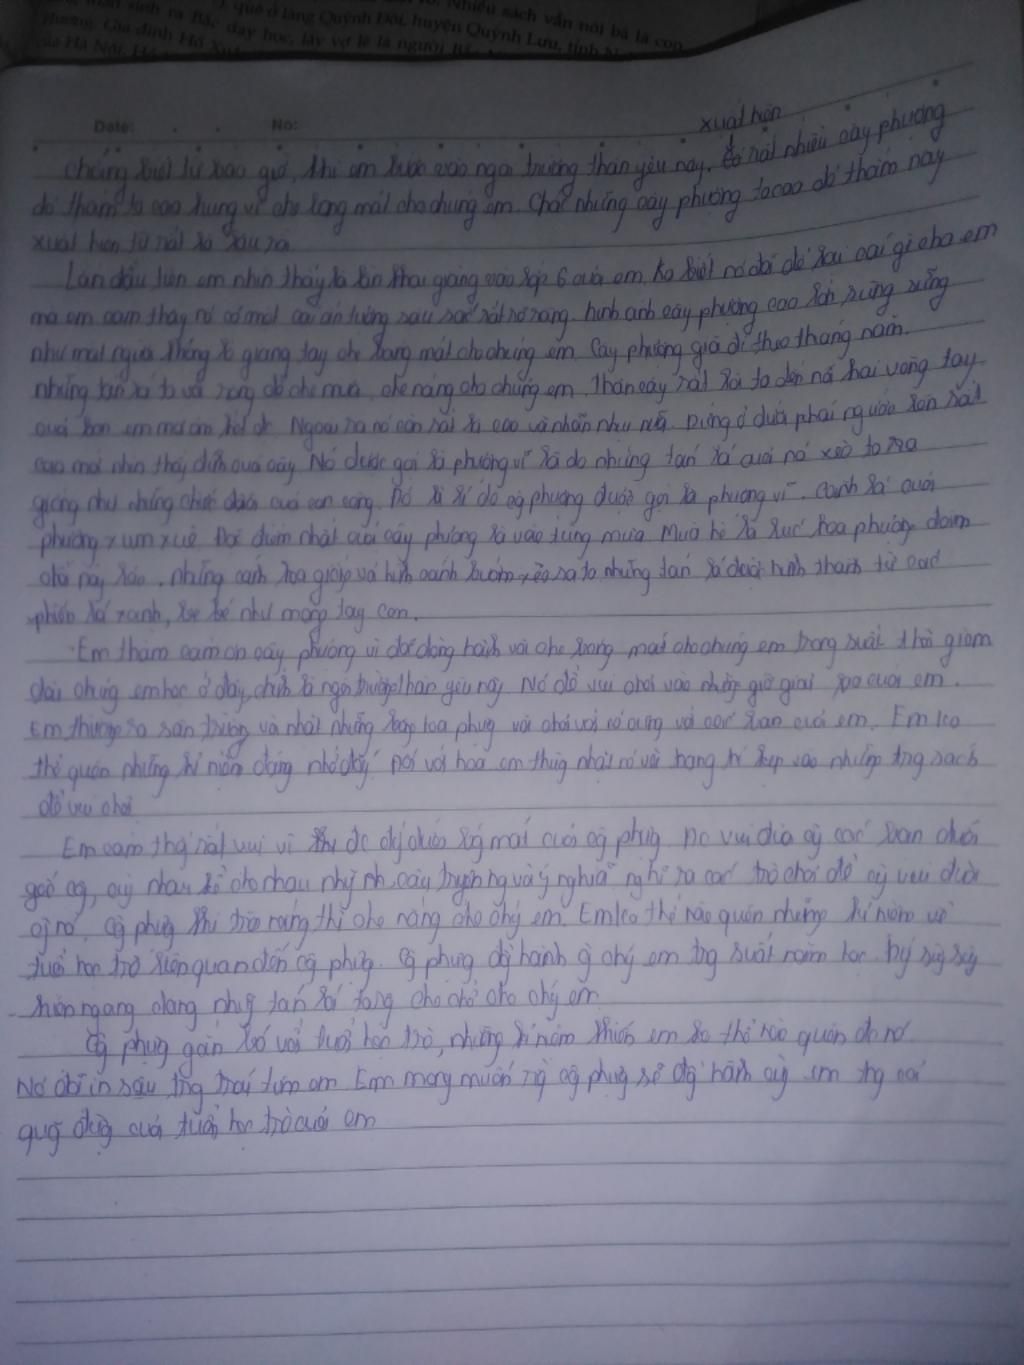 Nhiều sách vẫn nói bà là con
quê ở làng Quỳnh Đôi, huyện Quỳnh Lưu, tỉnh
sinh ra Bắc dạy học, lấy vợ lẽ là người
Gia đình Hồ
Hà Nội,
Date: No:
xuất hiện
Chẳng biết từ bao giờ, khi em bước vào ngôi trường thân yêu này, rất nhiều cây phượng
đỏ thắm to cao hùng vĩ che bóng mát cho chúng em. Chắc những cây phượng to cao đỏ thắm này
xuất hiện từ rất là lâu rồi
Lần đầu tiên em nhìn thấy là lần khai giảng vào lớp 6 của em. Ko biết nó đã để lại cái gì cho em
mà em cảm thấy nó có một cái ấn tượng sâu sắc rất rõ ràng. hình ảnh cây phượng cao lớn, sừng sững
như một người khổng lồ giang tay che bóng mát cho chúng em. Cây phượng già đi theo tháng năm.
những tán lá to và rộng để che mưa, che nắng cho chúng em. Thân cây rất là to đến nỗi hai vòng tay
của bạn em mới ôm hết đc. Ngoài ra nó còn rất là cao và nhẵn như nữa. Đứng ở dưới phải ngước lên rất
cao mới nhìn thấy đỉnh của cây. Nó được gọi là phượng vĩ là do những tán lá của nó xòe to ra
giống như những chiếc đuôi của con công. Đó là lí do cây phượng được gọi là phượng vĩ. Cành lá của
phượng xum xuê. Đặc điểm nhất của cây phượng là vào từng mùa. Mùa hè là lúc hoa phượng
những cánh hoa giống và hình cánh bướm xòe ra to những tán lá được hình thành từ các
phiến lá xanh, be bé như móng tay con.
Em thầm cảm ơn cây phượng vì đã đồng hành và che bóng mát cho chúng em trong suốt thời gian
dài chúng em học ở đây, chính là ngôi trường thân yêu này. Nó để vui chơi vào những giờ giải lao của em.
Em thường ra sân trường và nhặt những bông hoa phượng và chơi với nó cùng với các bạn của em. Em ko
thể quên những kỉ niệm đáng nhớ đấy. Đối với hoa em thường nhặt nó về trang trí kẹp vào những trang sách
để vui chơi
Em cảm thấy rất vui vì đc đứng dưới bóng mát của cây phượng. Đc vui đùa cùng các bạn dưới
gốc cây, cùng nhau kể cho nhau những câu truyện hay và ý nghĩa nghĩ ra các trò chơi để cùng vui đùa
với nó. Cây phượng khi trời nắng thì che nắng cho chúng em. Em ko thể nào quên những kỉ niệm về
tuổi học trò liên quan đến cây phượng. Cây phượng đồng hành cùng chúng em trong suốt năm học.
hiên ngang dang những tán lá che chở cho chúng em
Cây phượng gắn bó với tuổi học trò, những kỉ niệm khiến em ko thể nào quên đc nó.
Nó đã in sâu trong trái tim em. Em mong muốn rằng cây phượng sẽ đồng hành cùng em trong cái
quãng đường của tuổi học trò của em